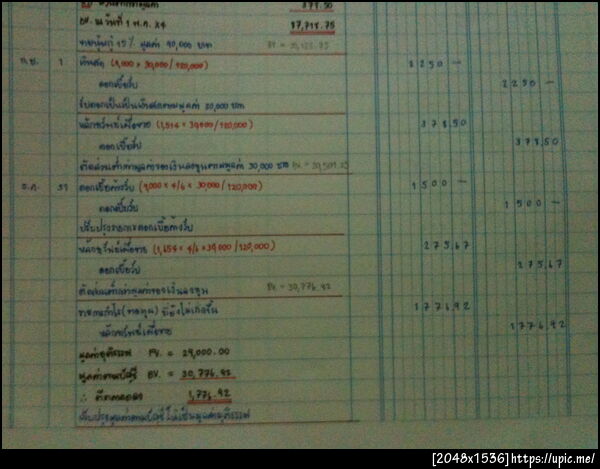 378.50
BV. ณ วันที่ 1 พ.ค. x4 87,718.75
ขายหุ้นกู้ 75% มูลค่า 90,000 บาท
ก.ย. 1 เงินสด (9,000 x 30,000/120,000) 2250 -
ดอกเบี้ยรับ 2250 -
รับดอกเบี้ยเป็นเงินสดตามมูลค่า 30,000 บาท
หลักทรัพย์เผื่อขาย (1,514 x 30,000/120,000) 378,50
ดอกเบี้ยรับ 378,50
ตัดส่วนต่ำกว่ามูลค่าของเงินลงทุนตามมูลค่า 30,000 บาท
ธ.ค. 31 ดอกเบี้ยค้างรับ (9,000 x 4/6 x 30,000/120,000) 1500 -
ดอกเบี้ยรับ 1500 -
ปรับปรุงรายการดอกเบี้ยค้างรับ
หลักทรัพย์เผื่อขาย (1,654 x 4/6 x 30,000/120,000) 275,67
ดอกเบี้ยรับ 275,67
ตัดส่วนต่ำกว่ามูลค่าของเงินลงทุน BV. = 30,776.92
รายการกำไร(ขาดทุน) ที่ยังไม่เกิดขึ้น 1776,92
หลักทรัพย์เผื่อขาย 1776,92
มูลค่ายุติธรรม FV. = 29,000.00
มูลค่าตามบัญชี BV. = 30,776.92
∴ 1,776.92
ปรับปรุงมูลค่าตามบัญชีให้เป็นมูลค่ายุติธรรม
[2048x1536]https://upic.me/